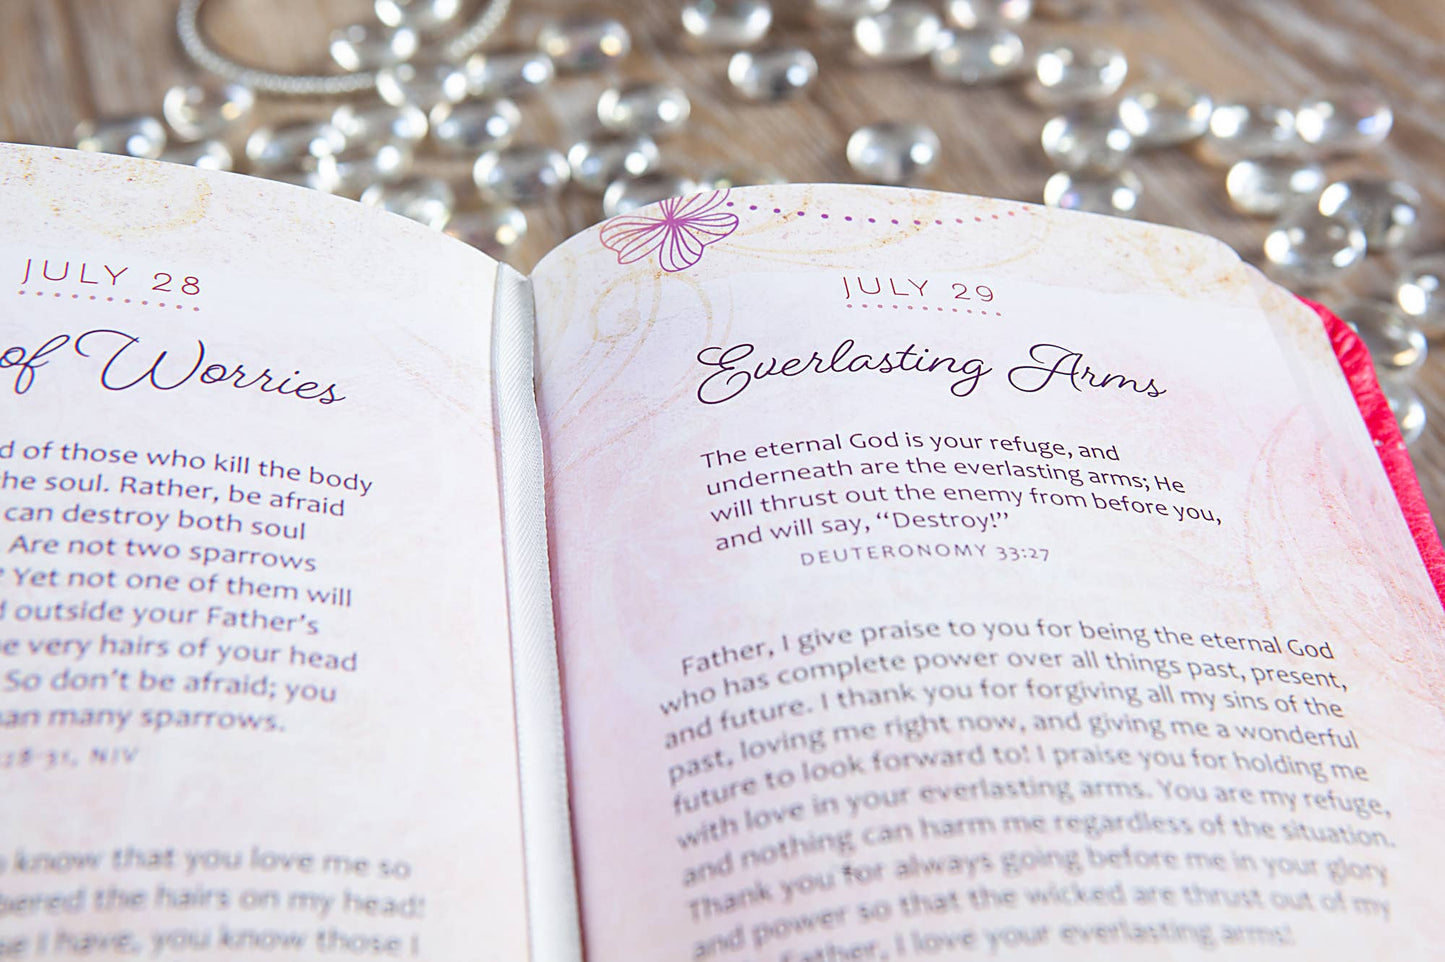 JULY 28
of Worries
of those who kill the body
the soul. Rather, be afraid
can destroy both soul
Are not two sparrows
? Yet not one of them will
outside your Father's
very hairs of your head
So don't be afraid; you
many sparrows.
28-31, NIV
know that you love me so
the hairs on my head!
I have, you know those I
JULY 29
Everlasting Arms
The eternal God is your refuge, and
underneath are the everlasting arms; He
will thrust out the enemy from before you,
and will say, “Destroy!”
DEUTERONOMY 33:27
Father, I give praise to you for being the eternal God
who has complete power over all things past, present,
and future. I thank you for forgiving all my sins of the
past, loving me right now, and giving me a wonderful
future to look forward to! I praise you for holding me
with love in your everlasting arms. You are my refuge,
and nothing can harm me regardless of the situation.
Thank you for always going before me in your glory
and power so that the wicked are thrust out of my
Father, I love your everlasting arms!